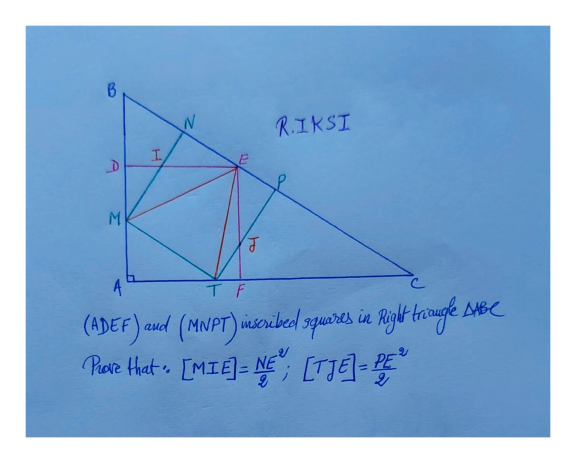 B
N
R.IKSI
D
I
E
P
M
J
A
T
F
C
(ADEF) and (MNPT) inscribed squares in Right triangle ΔABC
Prove that: [MIE]=NE²/2; [TJE]=PE²/2